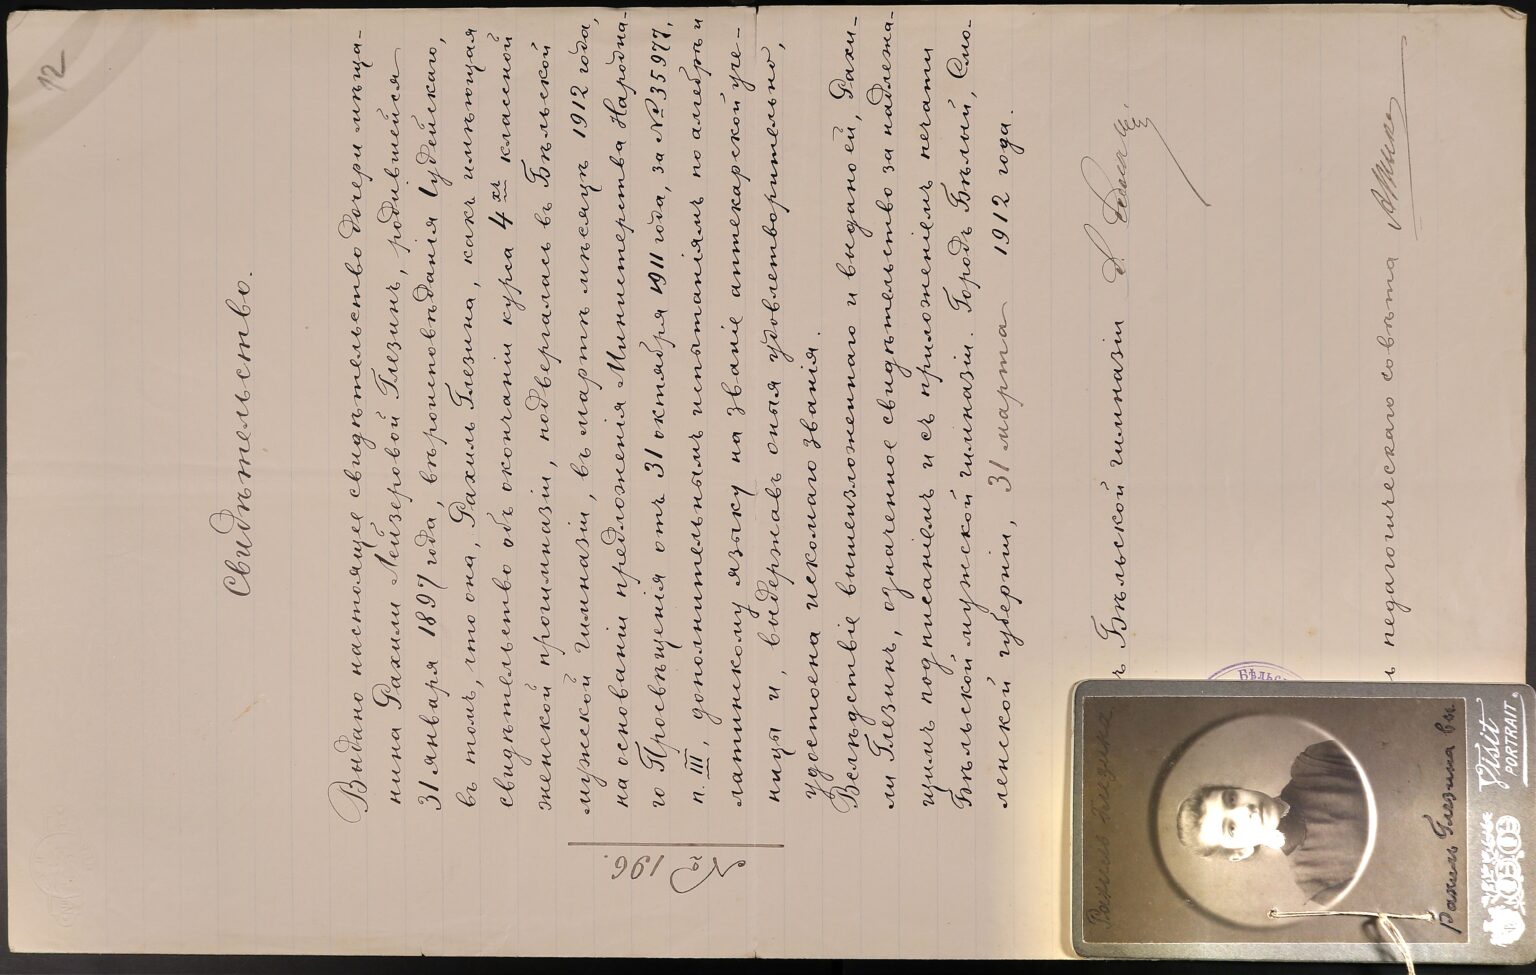 12
Свидѣтельство.
Выдано настоящее свидѣтельство дочери мѣща-
нина Рахили Лейзеровой Глезинъ, родившейся
31 января 1897 года, вѣроисповѣданія Іудейскаго,
въ томъ, что она, Рахиль Глезина, какъ имѣющая
свидѣтельство объ окончаніи курса 4хъ классной
женской прогимназіи, подвергалась въ Бѣльской
мужской гимназіи, въ мартѣ мѣсяцѣ 1912 года,
на основаніи предложенія Министерства Народна-
го Просвѣщенія отъ 31 октября 1911 года, за № 35977,
п. III, дополнительнымъ испытаніямъ по алгебрѣ и
латинскому языку на званіе аптекарской уче-
ницы и, выдержавъ оныя удовлетворительно,
удостоена искомаго званія.
Вслѣдствіе вышеизложеннаго и выдано ей, Рахи-
ли Глезинъ, означенное свидѣтельство за надлежа-
щимъ подписаніемъ и съ приложеніемъ печати
Бѣльской мужской гимназіи. Городъ Бѣлый, Смо-
ленской губерніи, 31 марта 1912 года.
№ 196.
ъ Бѣльской гимназіи
ь педагогическаго совѣта
БѢЛЬС
Рахиль Глезина
Рахиль Глезина
Visit
PORTRAIT.